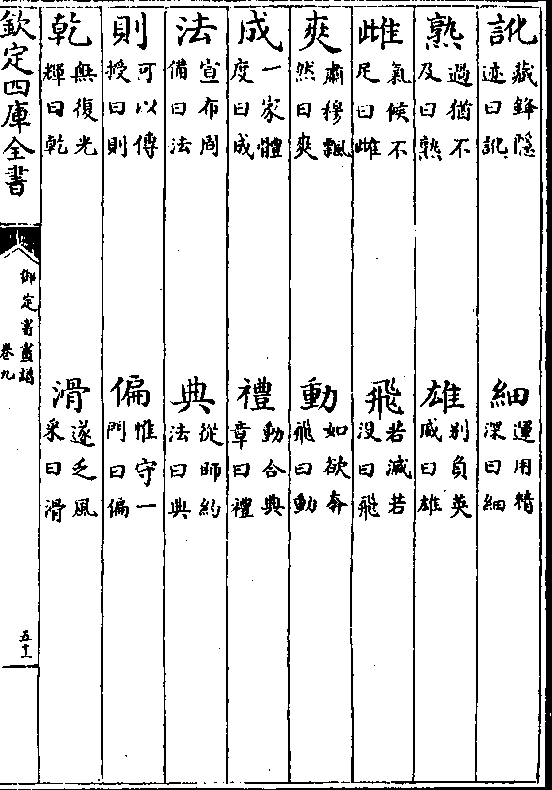 訛藏鋒隱迹曰訛 細運用精深曰細
熟過猶不及曰熟 雄别負英威曰雄
雌氣候不足曰雌 飛若滅若没曰飛
爽肅穆飄然曰爽 動如欲奔飛曰動
成一家體度曰成 禮動合典章曰禮
法宣布周備曰法 典從師約法曰典
則可以傳授曰則 偏惟守一門曰偏
乾無復光輝曰乾 滑遂乏風采曰滑
欽定四庫全書
御定書畫譜
卷九